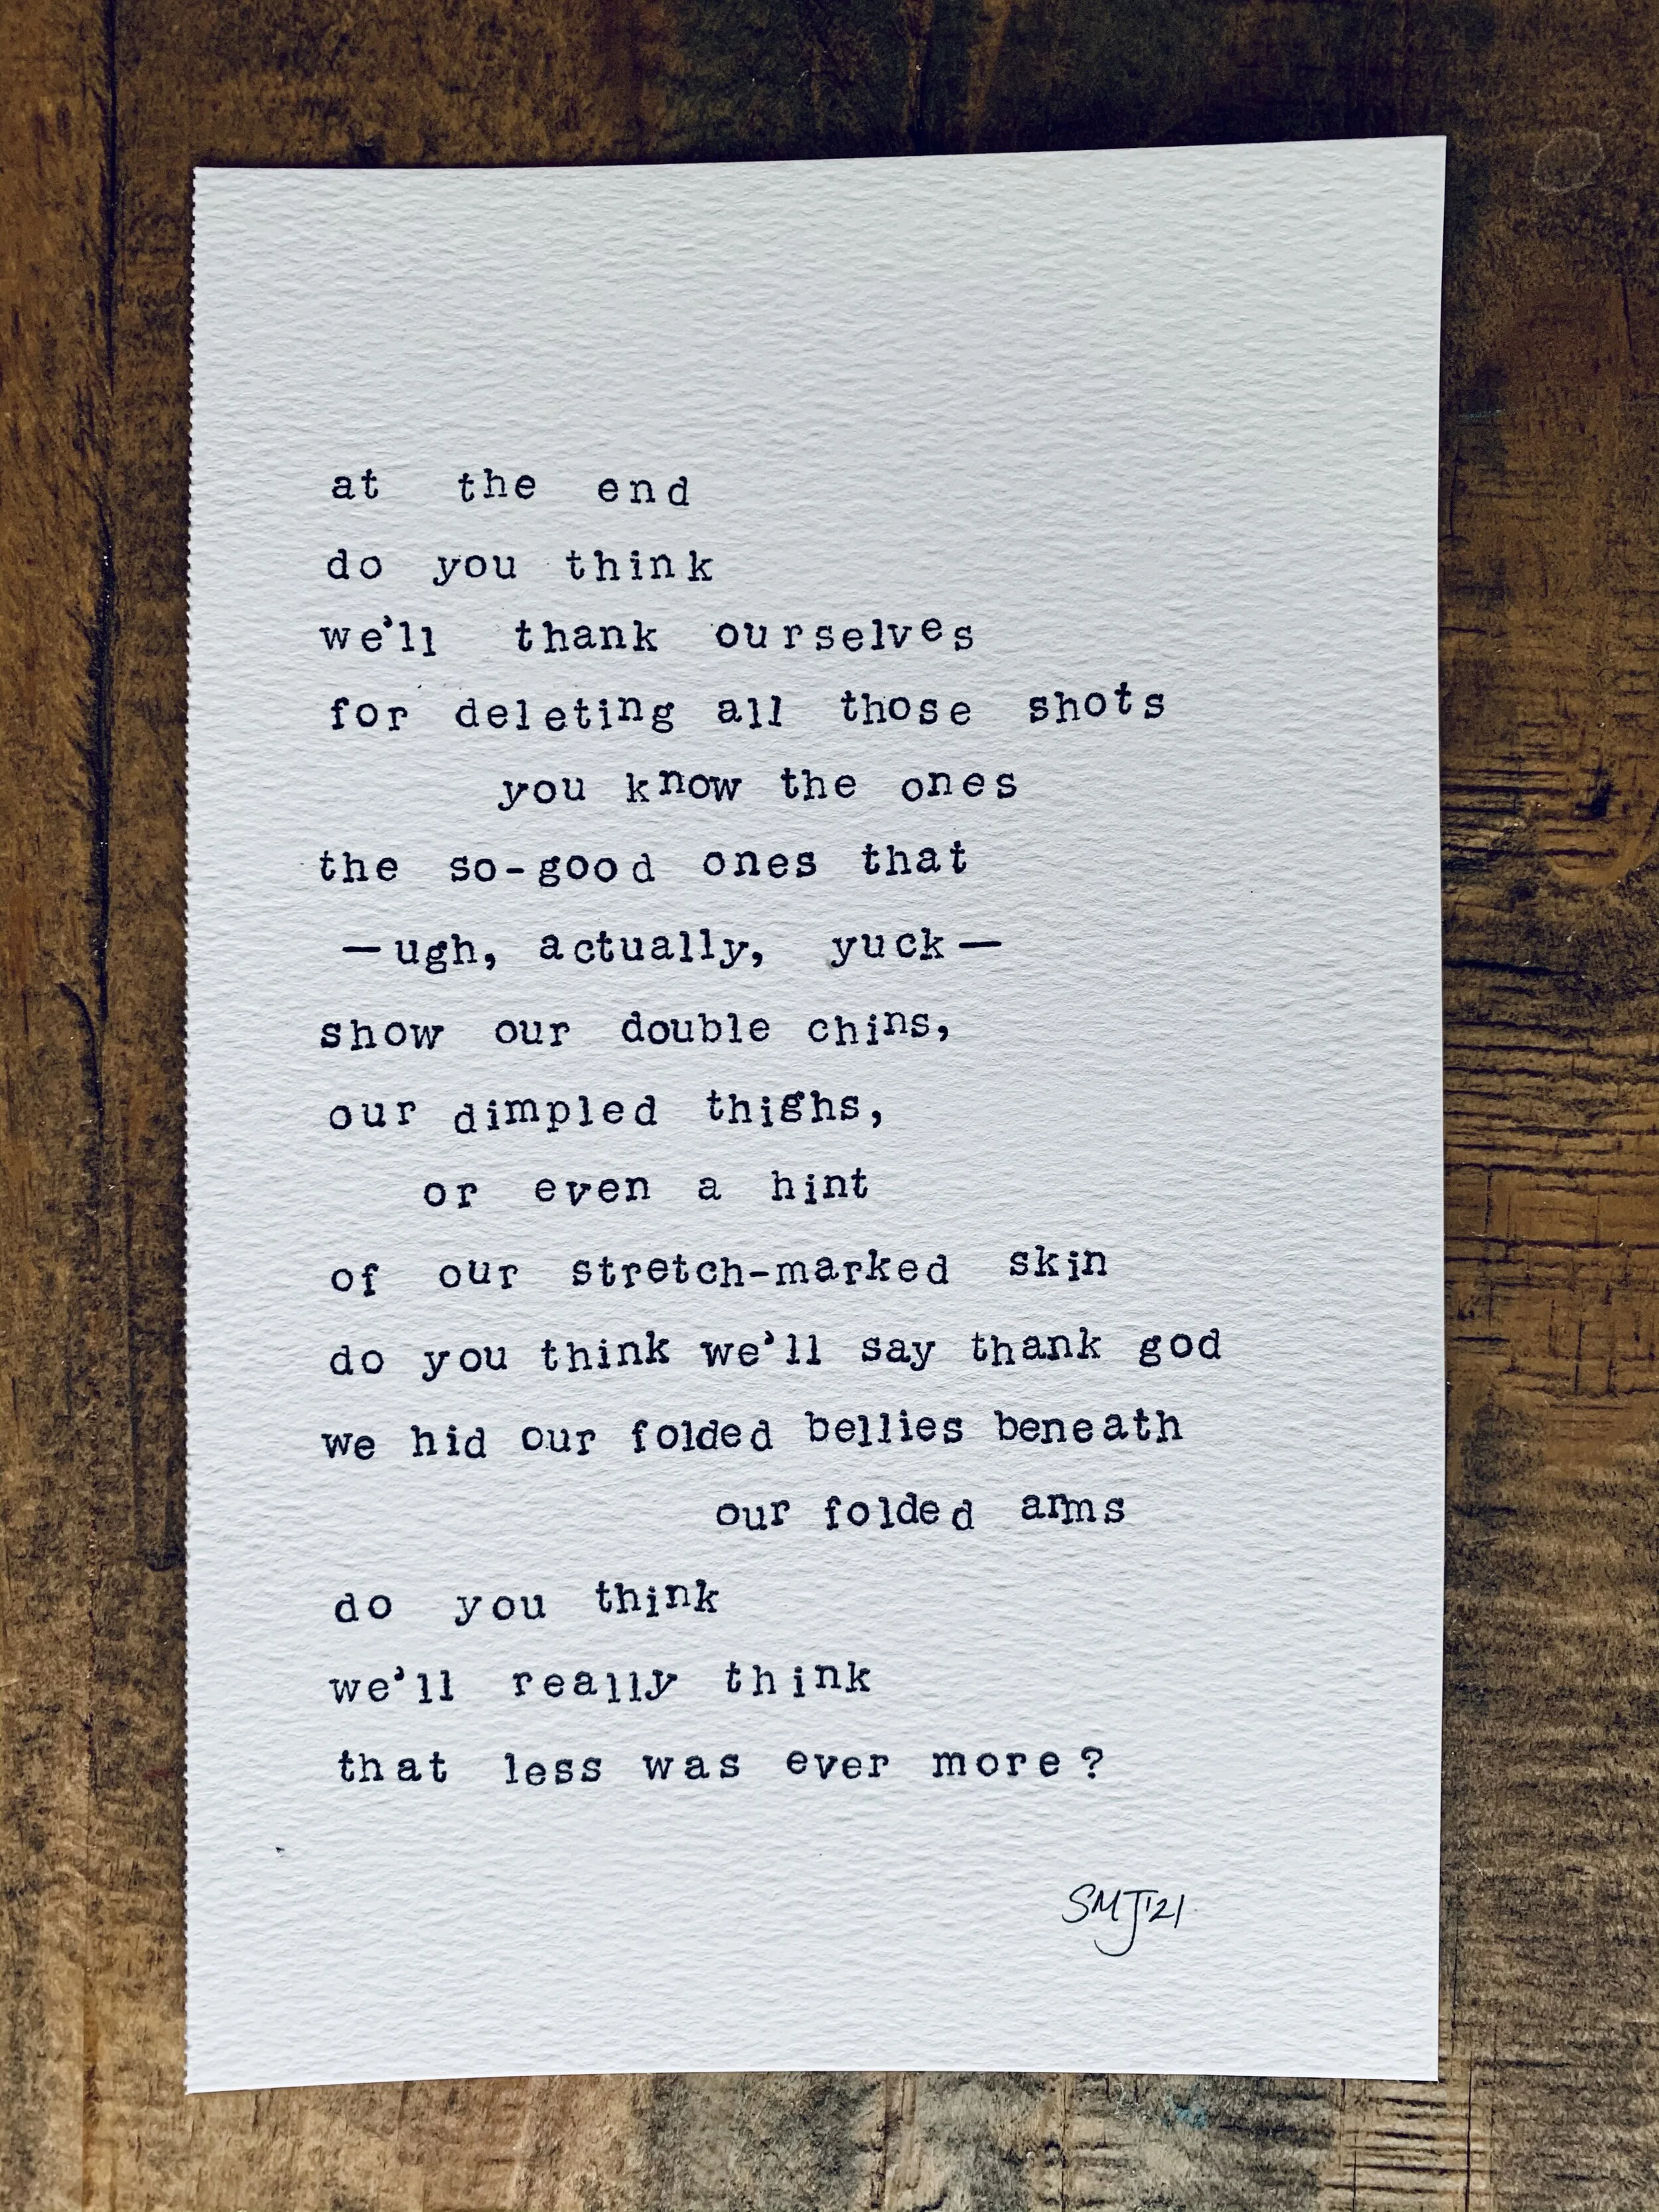 at the end
do you think
we'll thank ourselves
for deleting all those shots
you know the ones
the so-good ones that
—ugh, actually, yuck—
show our double chins,
our dimpled thighs,
or even a hint
of our stretch-marked skin
do you think we'll say thank god
we hid our folded bellies beneath
our folded arms
do you think
we'll really think
that less was ever more?
SMJ'21